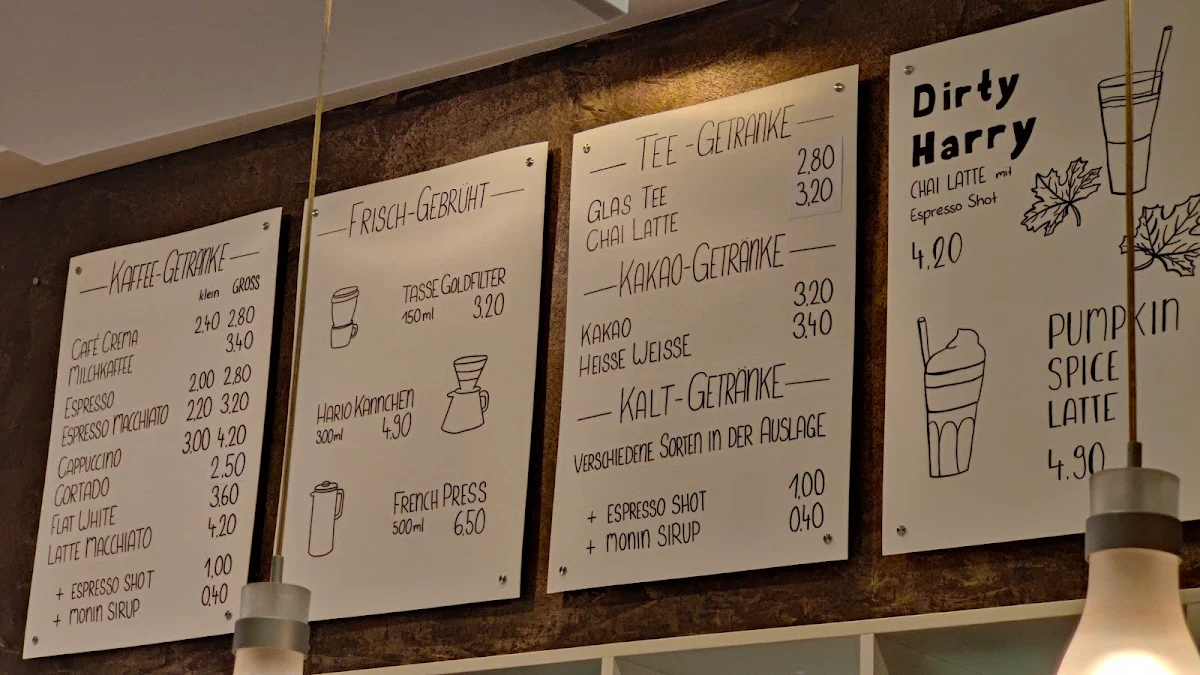 KAFFEE-GETRÄNKE
klein GROSS
CAFÉ CREMA 2,40 2,80
MILCHKAFFEE 3,40
ESPRESSO 2,00 2,80
ESPRESSO MACCHIATO 2,20 3,20
CAPPUCCINO 3,00 4,20
CORTADO 2,50
FLAT WHITE 3,60
LATTE MACCHIATO 4,20
+ ESPRESSO SHOT 1,00
+ MONIN SIRUP 0,40
FRISCH-GEBRÜHT
TASSE GOLDFILTER
150ml 3,20
HARIO KÄNNCHEN
300ml 4,90
FRENCH PRESS
500ml 6,50
TEE-GETRÄNKE
GLAS TEE 2,80
CHAI LATTE 3,20
KAKAO-GETRÄNKE
KAKAO 3,20
HEISSE WEISSE 3,40
KALT-GETRÄNKE
VERSCHIEDENE SORTEN IN DER AUSLAGE
+ ESPRESSO SHOT 1,00
+ MONIN SIRUP 0,40
Dirty
Harry
CHAI LATTE mit
Espresso Shot
4.20
PUMPKIN
SPICE
LATTE
4.90